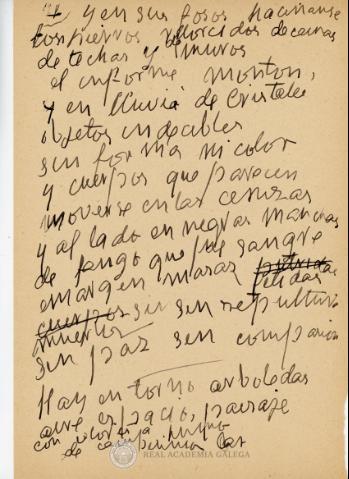 y en sus fosos hacinanse
los hierros retorcidos de camas
de techos y muros
el informe monton,
y en lluvia de cristales
objetos indecibles
sin forma ni color
y cuerpos que parecen
moverse en las cenizas
y al lado en negras manchas
de fango que fue sangre
emargen masas
sin sepultura
muertos
sin paz sin compasion
Hay en torno arboledas
aire espacio, paisaje
con
de campiña
REAL ACADEMIA GALEGA